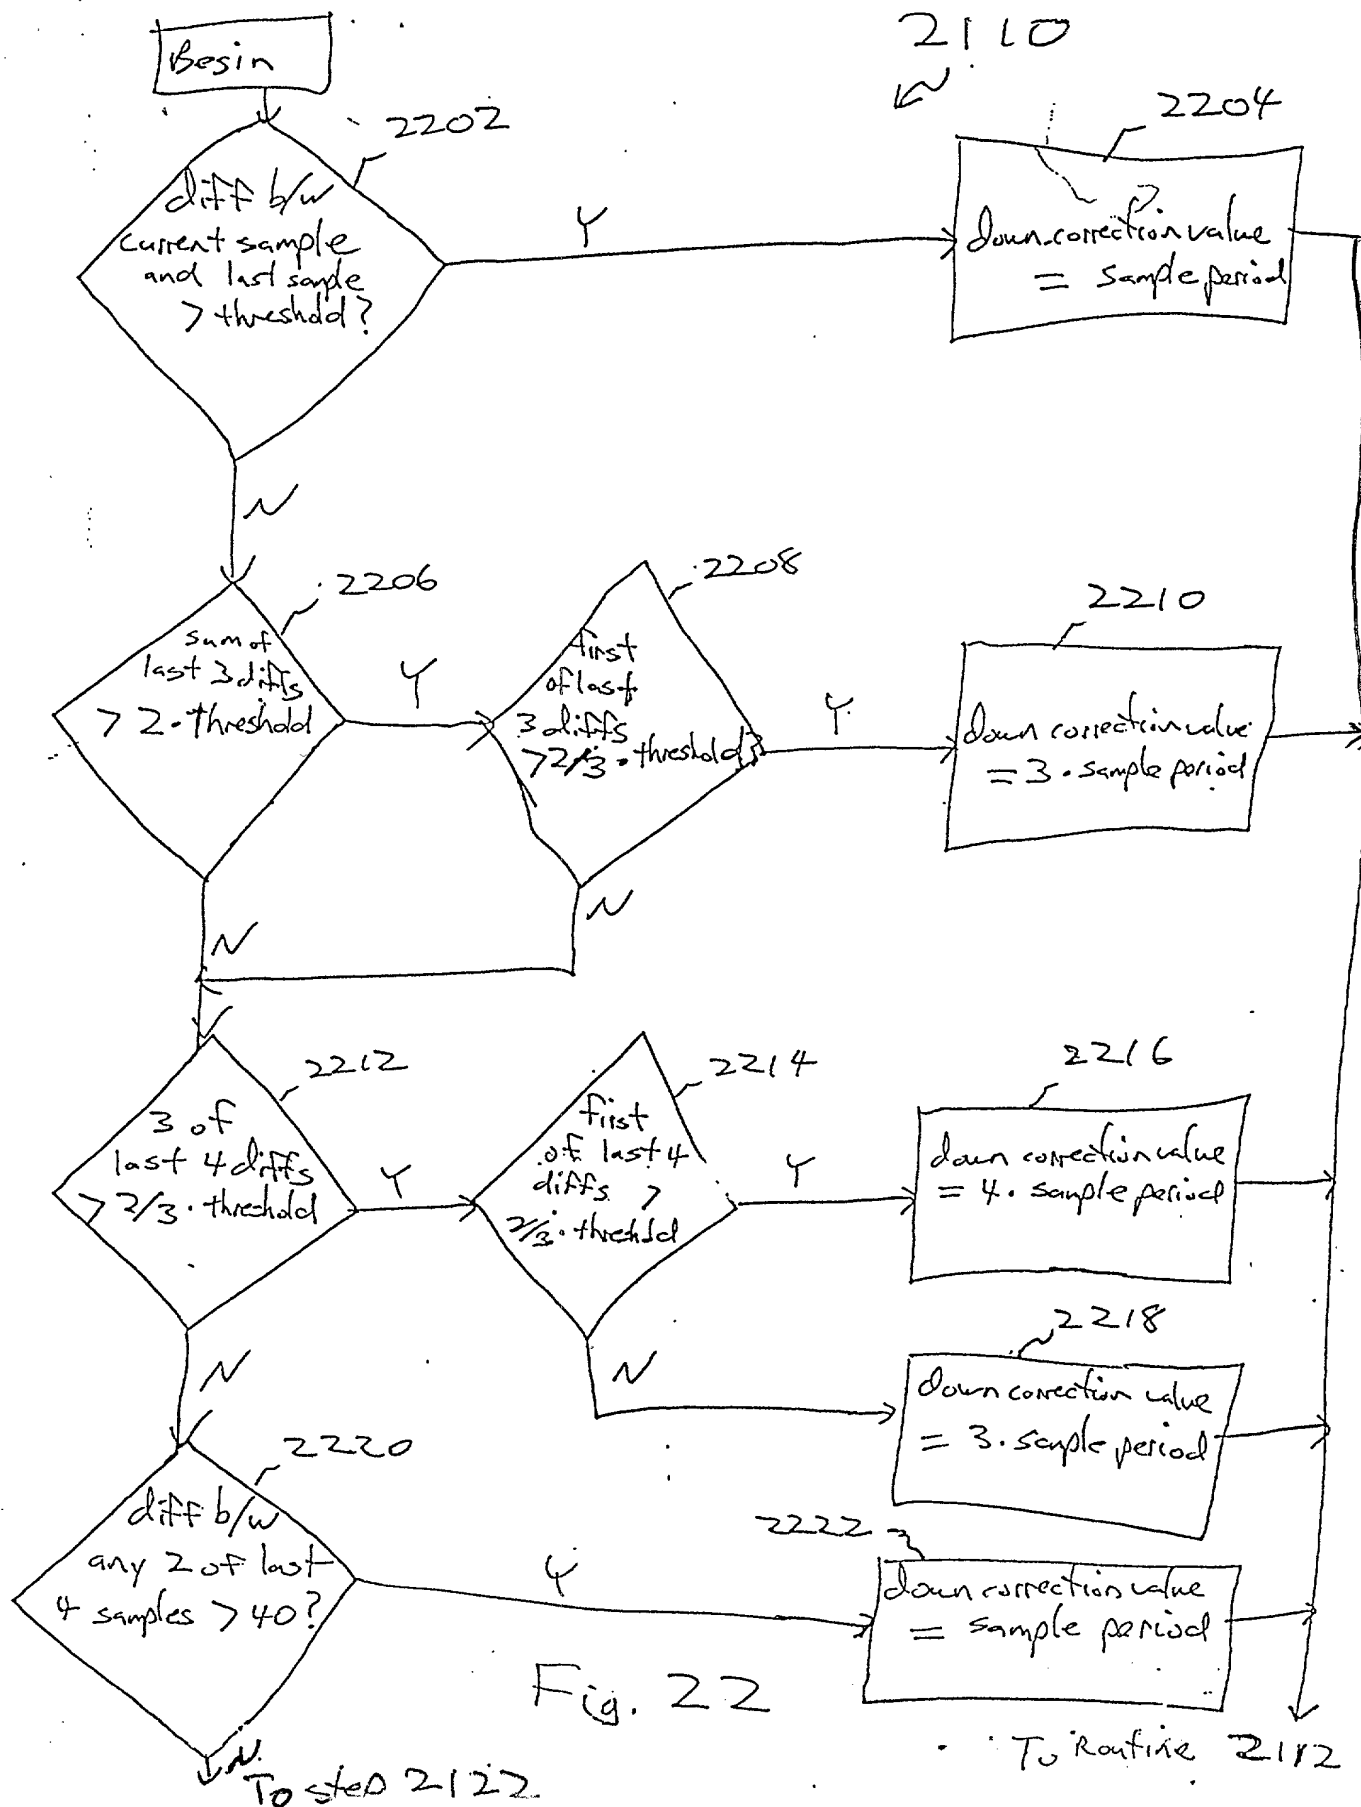 Begin
2110
2202
2204
diff b/w
current sample
and last sample
> threshold?
Y
down correction value
= sample period
N
2206
2208
2210
sum of
last 3 diffs
> 2 · threshold
Y
first
of last
3 diffs
> 2/3 · threshold
Y
down correction value
= 3 · sample period
N
N
2212
2214
2216
3 of
last 4 diffs
> 2/3 · threshold
Y
first
of last 4
diffs >
2/3 · threshold
Y
down correction value
= 4 · sample period
N
N
2218
down correction value
= 3 · sample period
2220
diff b/w
any 2 of last
4 samples > 40?
Y
2222
down correction value
= sample period
Fig. 22
N
To step 2122
To Routine 2112